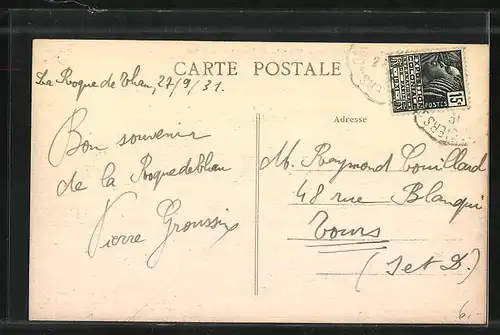 La Roque de Than, 27/9/31.
CARTE POSTALE
15c
POSTES
Adresse
Bon souvenir
de la Roquedethan
Pierre Groussin
M. Raymond Couillard
48 rue Blanqui
Tours
(I et L.)
6.-